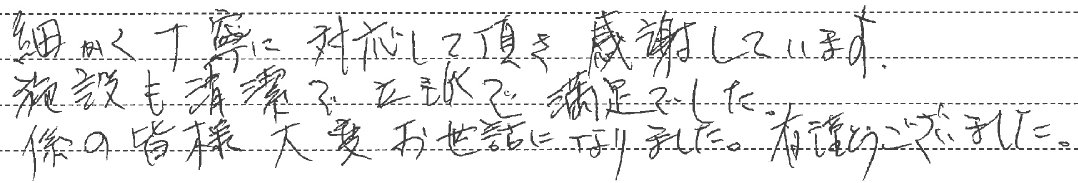 細かく丁寧に対応して頂き感謝しています.
施設も清潔で立派で満足でした.
係の皆様大変お世話になりました。有謹とうございました。